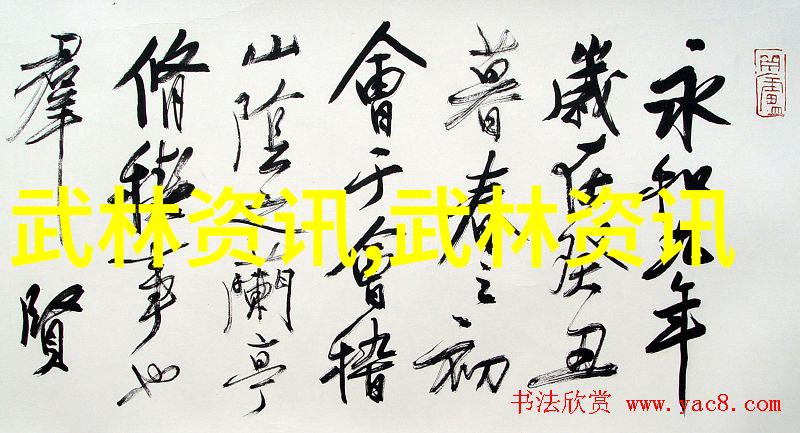 永和九年
歲在癸丑
暮春之初
會于會稽
山陰之蘭亭
脩稧事也
羣賢
武林资讯,武林资讯
书法欣赏 www.yac8.com